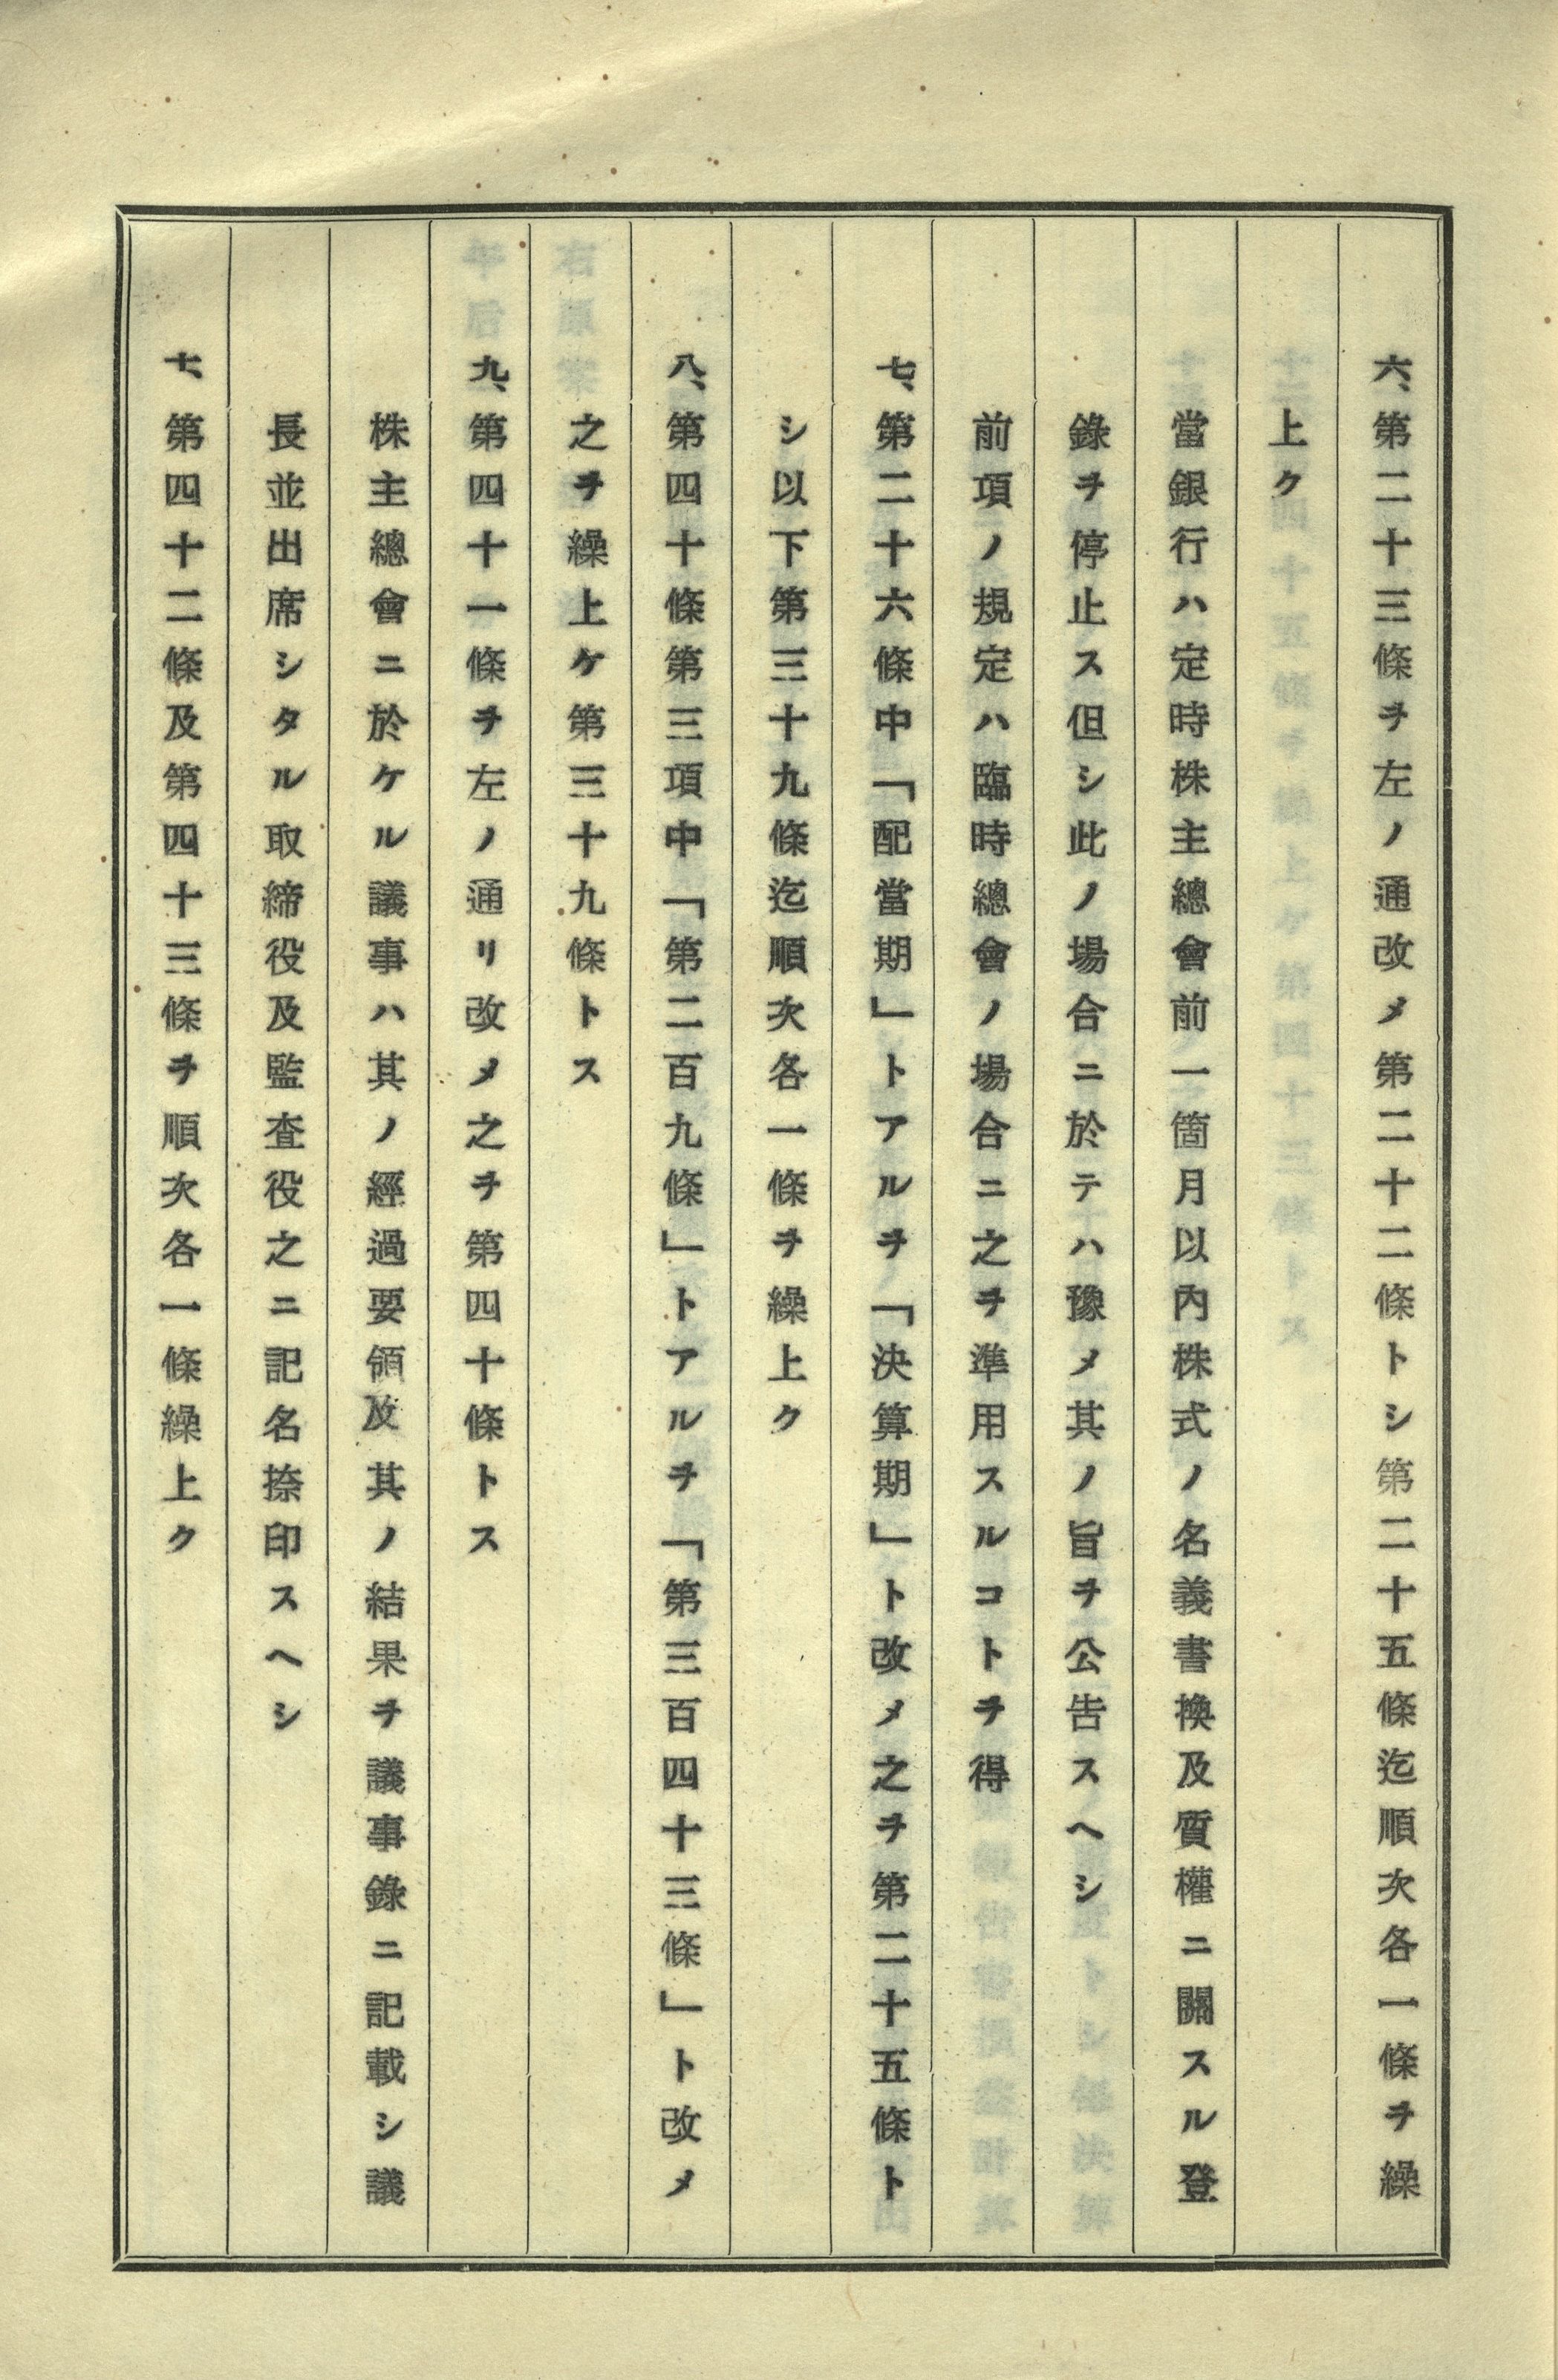 六、第二十三條ヲ左ノ通改メ第二十二條トシ第二十五條迄順次各一條ヲ繰
上ク
當銀行ハ定時株主總會前一箇月以內株式ノ名義書換及質權ニ關スル登
錄ヲ停止ス但シ此ノ場合ニ於テハ豫メ其ノ旨ヲ公告スヘシ
前項ノ規定ハ臨時總會ノ場合ニ之ヲ準用スルコトヲ得
七、第二十六條中「配當期」トアルヲ「決算期」ト改メ之ヲ第二十五條ト
シ以下第三十九條迄順次各一條ヲ繰上ク
八、第四十條第三項中「第二百九條」トアルヲ「第三百四十三條」ト改メ
之ヲ繰上ケ第三十九條トス
九、第四十一條ヲ左ノ通リ改メ之ヲ第四十條トス
株主總會ニ於ケル議事ハ其ノ經過要領及其ノ結果ヲ議事錄ニ記載シ議
長並出席シタル取締役及監査役之ニ記名捺印スヘシ
十、第四十二條及第四十三條ヲ順次各一條繰上ク